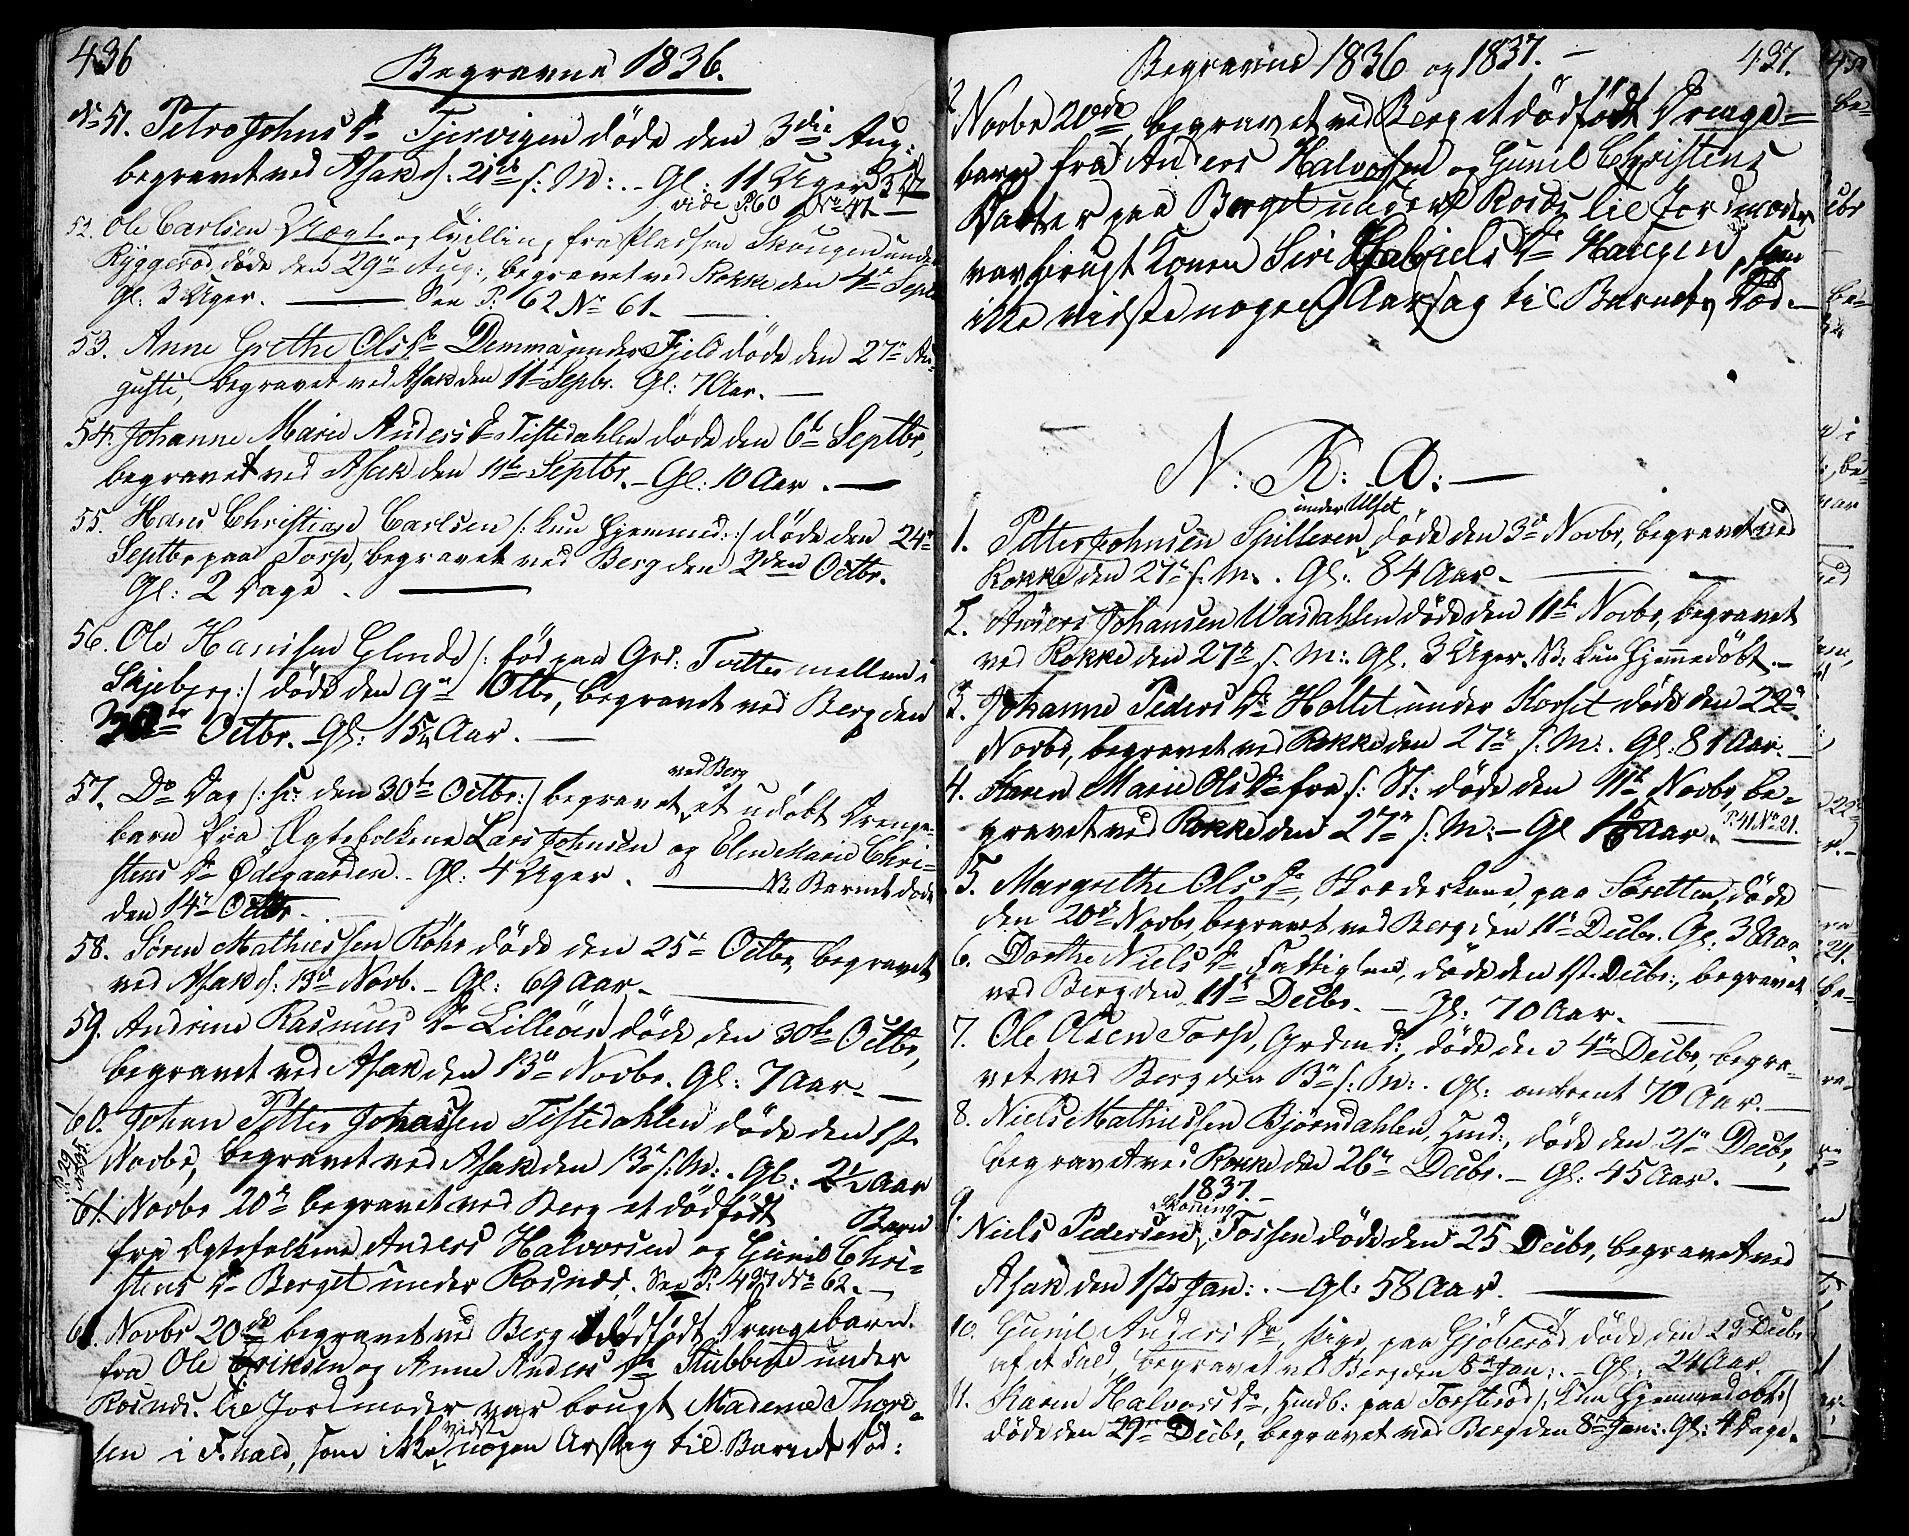 436
Begravne 1836.
No 51. Petro Johns Dr Tjervigen döde den 3die Aug:
begravet ved Asak d: 21de s: M: - Gl: 11 Uger
vide P. 60 No 47
52. Ole Carlsen Uægte og Tvilling fra Pladsen Skaugen under
Ryggeröd, döde den 29n Aug:, begravet ved Rokke den 4de Sept
Gl: 3 Uger. — See P. 62 No 61.
53. Anne Grethe Ols Dr Demma under Fjeld döde den 27n Au-
gusti, begravet ved Asak den 11te Septbr. Gl: 7 Aar. —
54. Johanne Marie Anders Dr Tistedahlen döde den 6te Septbr,
begravet ved Asak den 11te Septbr. - Gl: 10 Aar. —
55. Hans Christian Carlsen /: kun hjemmed: :/ döde den 24n
Septbr paa Torp, begravet ved Berg den 2den Octbr.
Gl: 2 Dage. —
56. Ole Hansen Glende /: föd paa Grd: Tvitter mellem i
Skjeberg :/ döde den 9n Octbr, begravet ved Berg den
30te Octbr. Gl: 15 Aar. —
57. Do Dag /: sc: den 30te Octbr: :/ begravet ved Berg et udöbt Drenge-
barn fra Ægtefolkene Lars Johnsen og Elen Marie Chri-
stens Dr Ødegaarden. - Gl: 4 Uger. — NB Barnet döde
den 14n Octbr.
58. Sören Mathiesen Röhr döde den 25n Octbr, begravet
ved Asak d: 13de Novb. - Gl: 69 Aar. —
59. Andrine Rasmus Dr Lilleöen döde den 30te Octbr,
begravet ved Asak den 13n Novbr. Gl: 7 Aar. —
60. Johan Petter Johansen Tistedahlen döde den 1ste
Novbr, begravet ved Asak den 13n s: M: . Gl: 2½ Aar
61. Novbr 20n begravet ved Berg et dödfödt Barn
fra Ægtefolkene Anders Halvorsen og Gunil Chri-
stens Dr Berget under Rosnæs. See P. 437 No 62. —
61. Novbr 20de begravet ved Berg et dödfödt Drengebarn
fra Ole Eriksen og Anne Anders Dr Stubbene under
Rosnæs. Til Jordmoder var brugt Madame Thor-
sen i F.hald, som ikke vidste nogen Aarsag til Barnets Död:
437.
Begravne 1836 og 1837. —
Novbr 20de begravet ved Berg et dödfödt Drenge-
barn fra Anders Halvorsen og Gunil Christens
Datter paa Berget under Rosnæs. Til Jordmoder
var brugt Konen Siri Gabriels Dr Haugen, som
ikke vidste nogen Aarsag til Barnets Död. —
N: K: A: —
1. Petter Johnsen Spilleren under Ulset, döde den 3de Novbr, begravet ved
Rokke den 27n s: M: . Gl: 84 Aar. —
2. Anders Johansen Wasdahlen döde den 11te Novbr, begravet
ved Rokke den 27n s: M: . Gl. 3 Uger. NB: kun hjemmedöbt. —
3. Johanne Peders Dr Holtet under Korset döde den 22n
Novbr, begravet ved Rokke den 27n s: M: . Gl: 81 Aar. —
4. Karen Marie Ols Dr fra s: St: döde den 11te Novbr, be-
gravet ved Rokke den 27n s: M: - Gl 16 Aar. P. 41 No 21.
5. Margrethe Ols Dr, Skræderkone, paa Sóretten, döde
den 20de Novbr, begravet ved Berg den 11te Decbr. Gl: 38 Aar.
6. Dorthe Niels Dr Fattiglem, döde den 1ste Decbr:, begravet
ved Berg den 11te Decbr. - Gl: 70 Aar. —
7. Ole Olsen Torp, Grdmd:, döde den 4n Decbr, begra-
vet ved Berg den 13n s: M: . Gl: omtrent 70 Aar. —
8. Niels Mathiesen Björndahlen, Hmd:, döde den 21n Decbr,
begravet ved Rokke den 26n Decbr. - Gl: 45 Aar. —
1837. —
9. Niels Pedersen Skoning, Fossen döde den 25 Decbr, begravet ved
Asak den 1ste Jan: . - Gl: 58 Aar. —
10. Gunil Anders Dr, Pige, paa Gjöberöd döde den 23 Decbr
af et Fald, begravet ved Berg den 8de Jan: . - Gl: 24 Aar
11. Karen Halvors Dr, Hmdb: paa Torsteröd /: kun hjemmedöbt :/
döde den 29n Decbr, begravet ved Berg den 8de Jan: . Gl: 4 Dage.